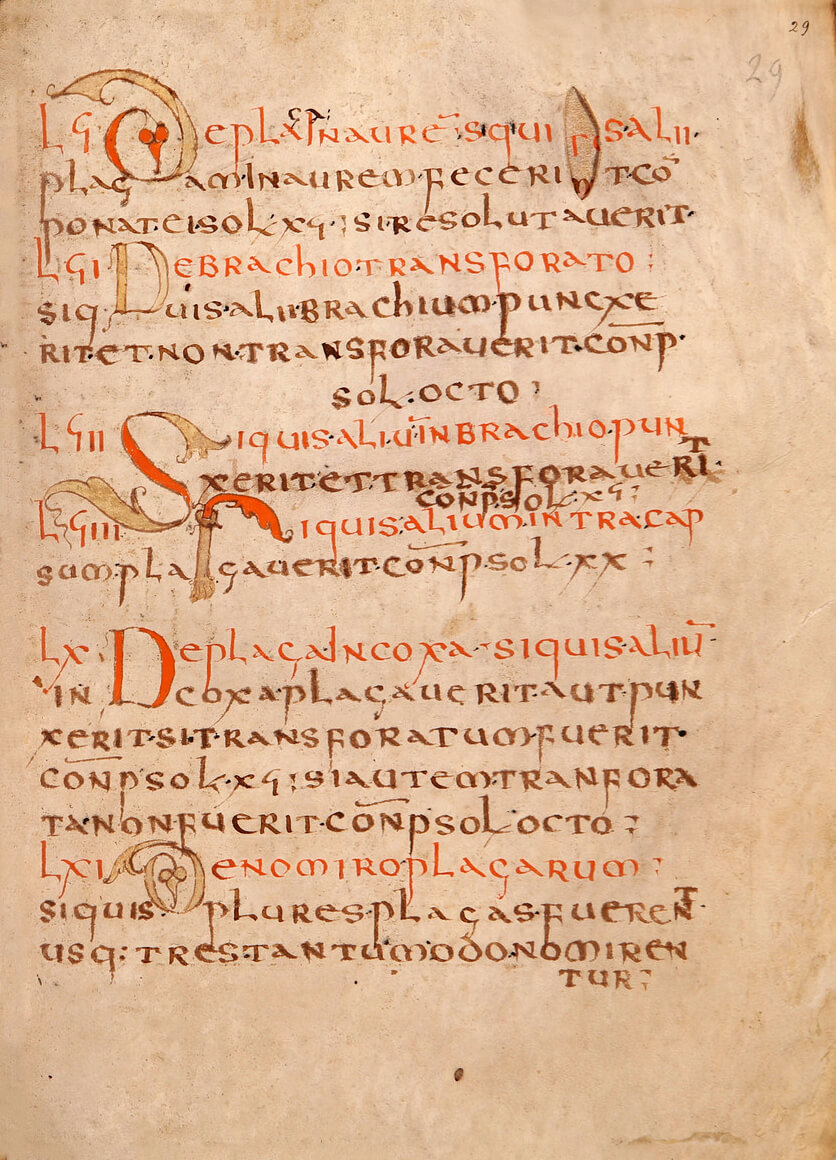 29
29
Lϛ DEPLAGA INAURE· SI QUI S·ALII·
PLAGAM INAUREM FECERIT CŌ
PONAT·EI·SOL·XϛI; SI RESOLUTAUERIT·
LϛI DEBRACHIO·TRANSFORATO;
SIQUIS·ALII·BRACHIUM·PUNCXE
RIT·ET·NON·TRANSFORAUERIT·CŌNP·
SOL·OCTO;
LϛII SIQUIS·ALIŪ INBRACHIO·PUN
XERIT ET TRANSFORAUERIT·
CŌNP·SOL·Xϛ;
LϛIII SIQUIS·ALIUM·INTRACAP
SUM·PLAGAUERIT·CŌNP·SOL·XX;
LX DEPLAGA INCOXA·SIQUIS·ALIŪ
IN COXA·PLAGAUERIT·AUT·PUN
XERIT·SI·TRANSFORATUM·FUERIT·
CŌNP SOL·Xϛ; SIAUTEM·TRANFORA
TA·NON FUERIT·CŌNP SOL OCTO;
LXI DENOMIROPLAGARUM;
SIQUIS PLURES·PLAGAS·FUERENT·
USQ: TRESTANTUMODO·NOMIREN
TUR;